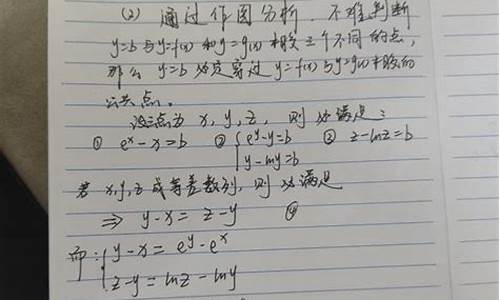 (2) 通过作图分析，不难判断
y=b与y=f(x)和y=g(x)相交三个不同的点，
那么 y=b 必定穿过 y=f(x)与y=g(x)相交的
公共点。
设三点为 x, y, z, 则必满足：
① eˣ-x=b ② { eʸ-y=b ③ z-lnz=b
y-lny=b
若 x,y,z 成等差数列，则必满足
⇒ y-x= z-y ④
而: { y-x= eʸ-eˣ
z-y= lnz-lny